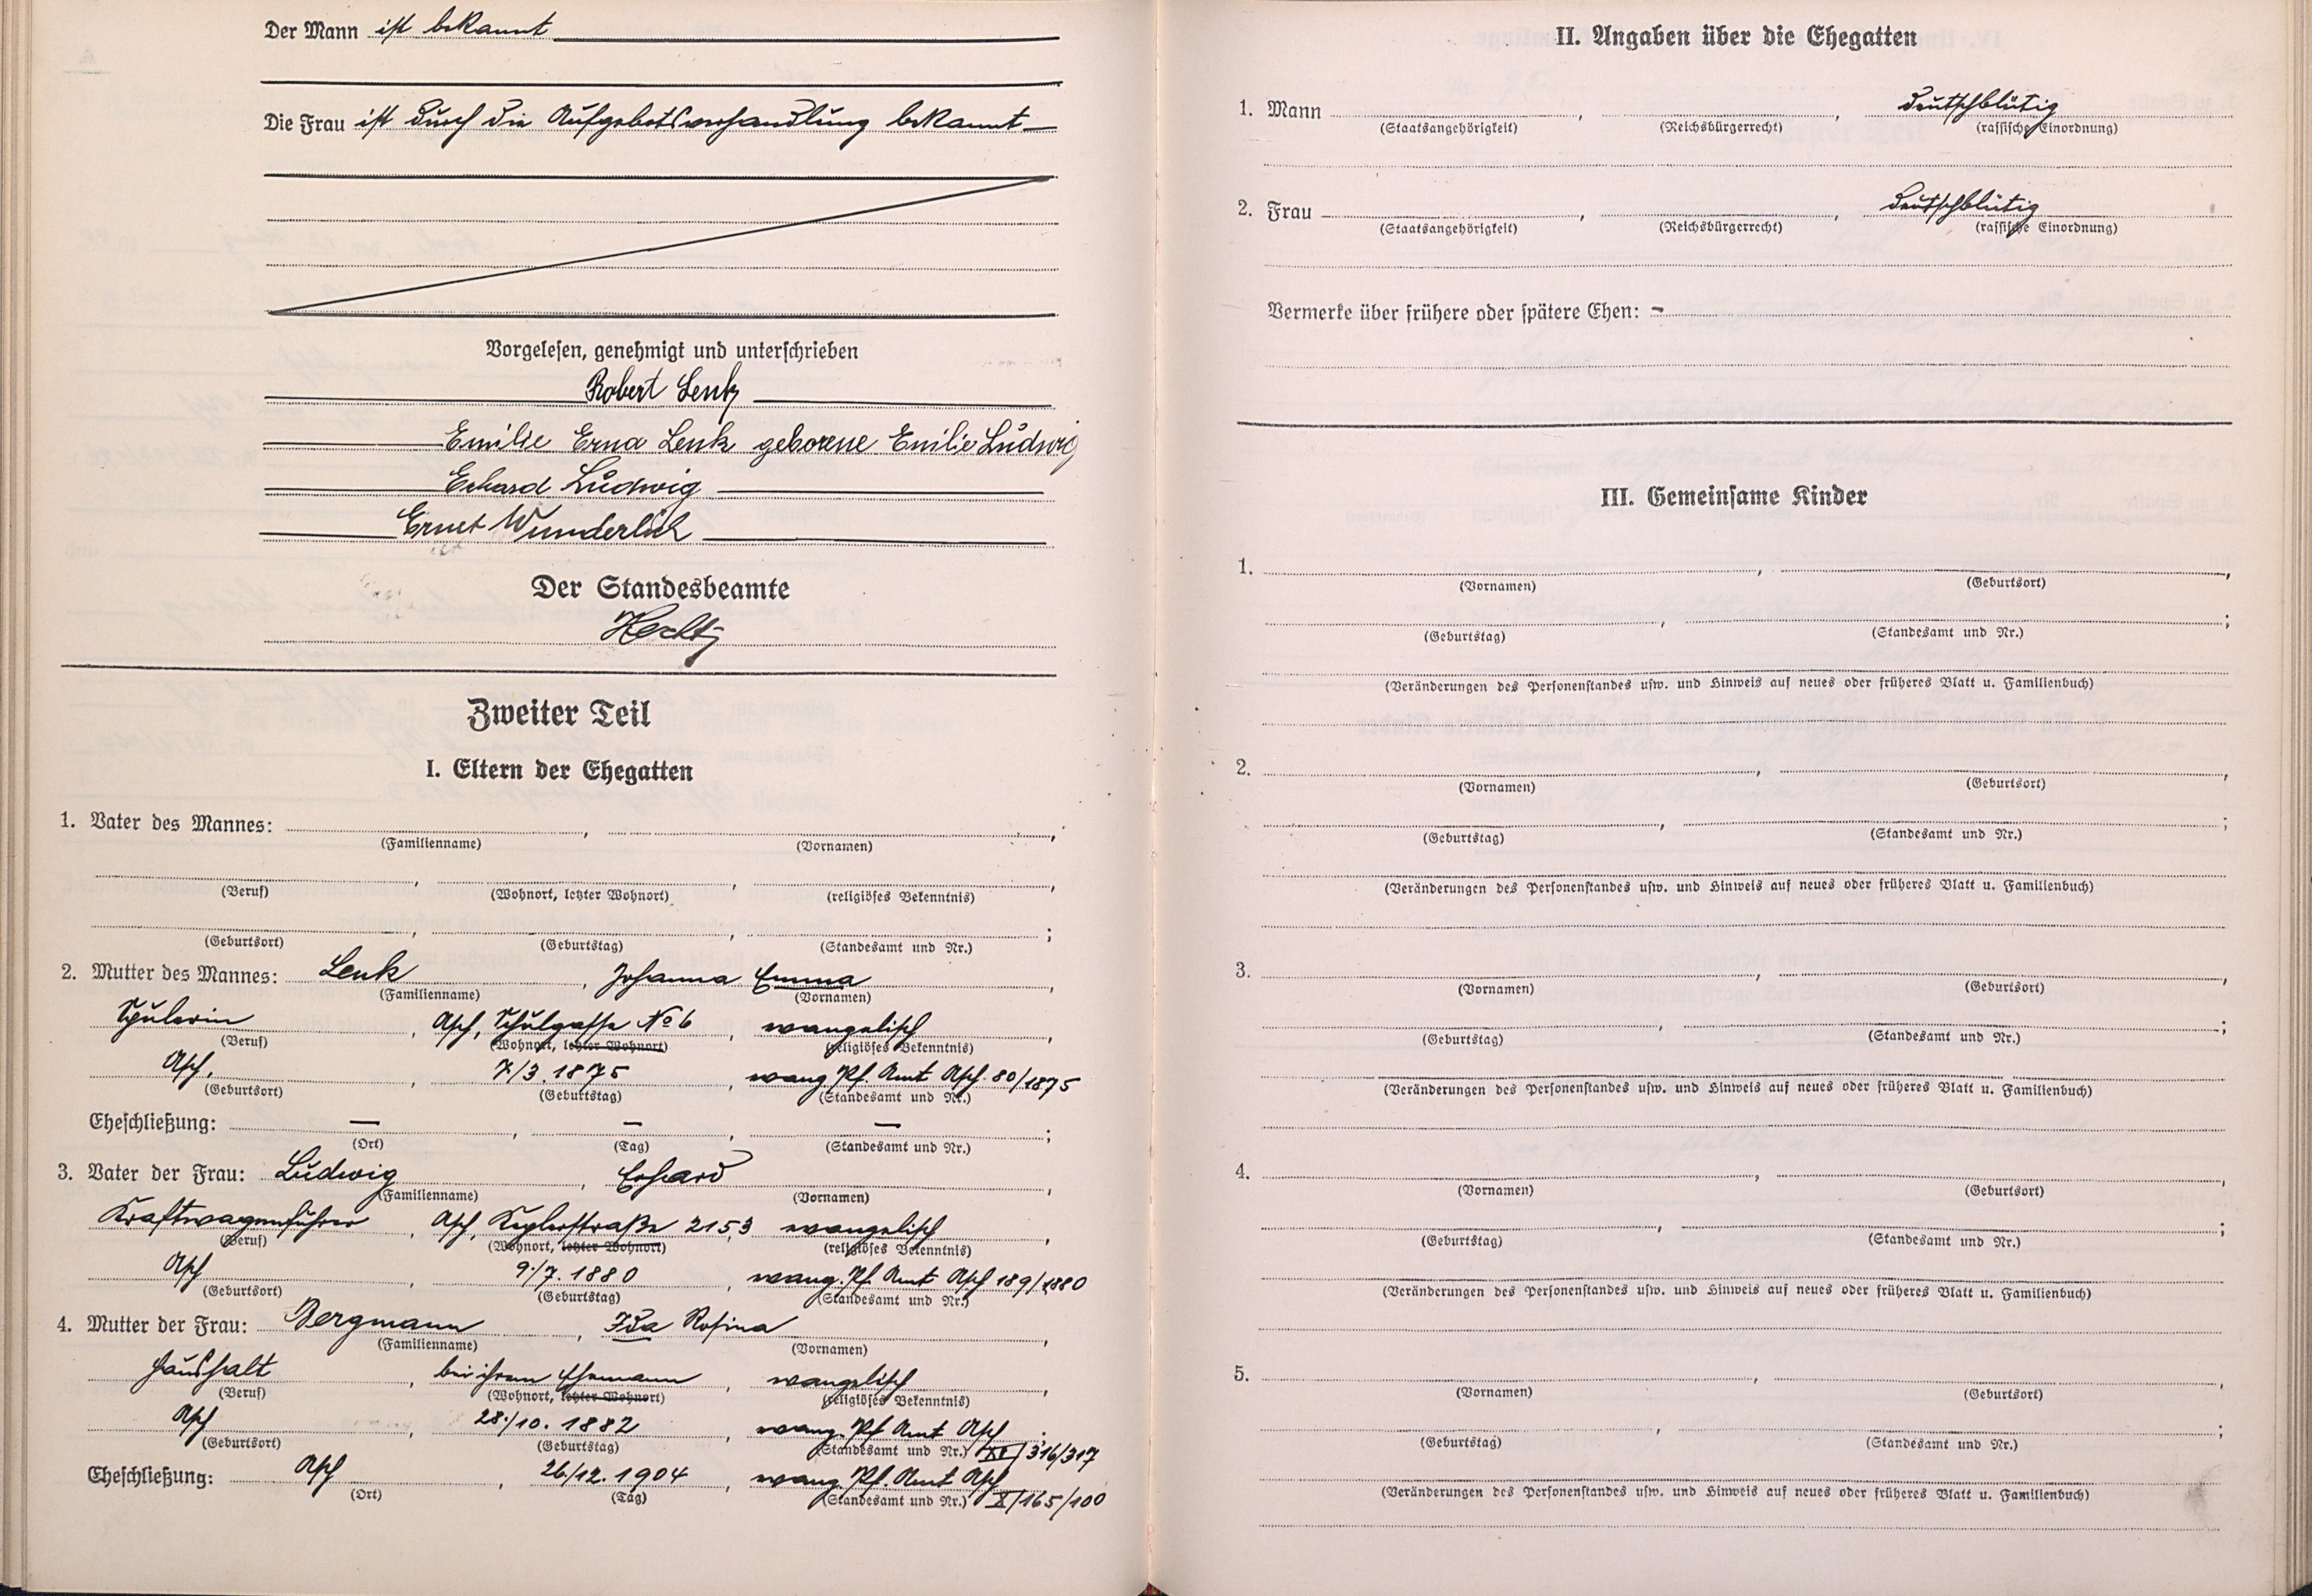 Der Mann ist bekannt
Die Frau ist durch die Aufgebotsverhandlung bekannt
Vorgelesen, genehmigt und unterschrieben
Robert Lenk
Emilie Erna Lenk geborene Emilie Ludwig
Erhard Ludwig
Ernst Wunderlich
Der Standesbeamte
Zweiter Teil
I. Eltern der Ehegatten
1. Vater des Mannes: , ,
(Familienname) (Vornamen)
, , ,
(Beruf) (Wohnort, letzter Wohnort) (religiöses Bekenntnis)
, , ;
(Geburtsort) (Geburtstag) (Standesamt und Nr.)
2. Mutter des Mannes: Lenk , Johanna Emma ,
(Familienname) (Vornamen)
Spulerin , Asch, Schulgasse No 6 evangelisch
(Beruf) (Wohnort, letzter Wohnort) (religiöses Bekenntnis)
Asch. , 7/3. 1875 , evang. Pf. Amt Asch. 80/1875
(Geburtsort) (Geburtstag) (Standesamt und Nr.)
Eheschließung: — , — , — ;
(Ort) (Tag) (Standesamt und Nr.)
3. Vater der Frau: Ludwig , Erhard ,
(Familienname) (Vornamen)
Kraftwagenführer , Asch, Keplerstraße 2153 evangelisch ,
(Beruf) (Wohnort, letzter Wohnort) (religiöses Bekenntnis)
Asch , 9./7. 1880 , evang. Pf. Amt Asch 189/1880
(Geburtsort) (Geburtstag) (Standesamt und Nr.)
4. Mutter der Frau: Bergmann , Ida Rosina ,
(Familienname) (Vornamen)
Haushalt , bei ihrem Ehemann , evangelisch ,
(Beruf) (Wohnort, letzter Wohnort) (religiöses Bekenntnis)
Asch , 28./10. 1882 , evang. Pf. Amt Asch ;
(Geburtsort) (Geburtstag) (Standesamt und Nr.) XI/316/317
Eheschließung: Asch , 26./12. 1904 , evang. Pf. Amt Asch
(Ort) (Tag) (Standesamt und Nr.) X/165/100
II. Angaben über die Ehegatten
1. Mann , , deutschblütig
(Staatsangehörigkeit) (Reichsbürgerrecht) (rassische Einordnung)
2. Frau , , deutschblütig
(Staatsangehörigkeit) (Reichsbürgerrecht) (rassische Einordnung)
Vermerke über frühere oder spätere Ehen: –
III. Gemeinsame Kinder
1. , ,
(Vornamen) (Geburtsort)
, ;
(Geburtstag) (Standesamt und Nr.)
(Veränderungen des Personenstandes usw. und Hinweis auf neues oder früheres Blatt u. Familienbuch)
2. , ,
(Vornamen) (Geburtsort)
, ;
(Geburtstag) (Standesamt und Nr.)
(Veränderungen des Personenstandes usw. und Hinweis auf neues oder früheres Blatt u. Familienbuch)
3. , ,
(Vornamen) (Geburtsort)
, ;
(Geburtstag) (Standesamt und Nr.)
(Veränderungen des Personenstandes usw. und Hinweis auf neues oder früheres Blatt u. Familienbuch)
4. , ,
(Vornamen) (Geburtsort)
, ;
(Geburtstag) (Standesamt und Nr.)
(Veränderungen des Personenstandes usw. und Hinweis auf neues oder früheres Blatt u. Familienbuch)
5. , ,
(Vornamen) (Geburtsort)
, ;
(Geburtstag) (Standesamt und Nr.)
(Veränderungen des Personenstandes usw. und Hinweis auf neues oder früheres Blatt u. Familienbuch)